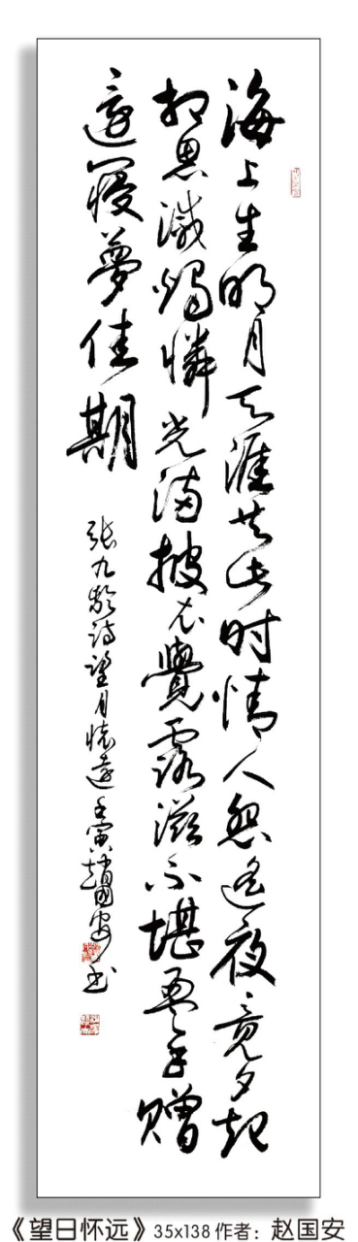 海上生明月天涯共此时情人怨遥夜竟夕起
相思滅燭憐光满披衣覺露滋不堪盈手赠
還寢夢佳期
张九龄诗望月懷遠壬寅趙國安书
《望日怀远》35x138 作者：赵国安